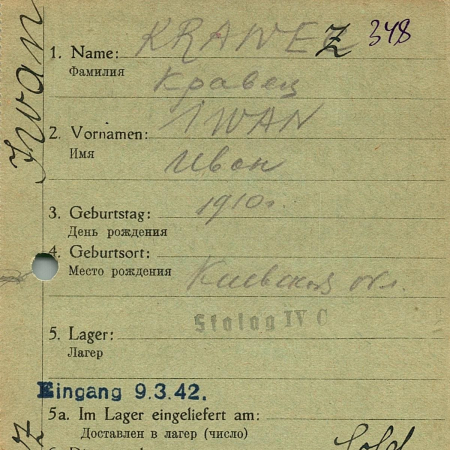 Iwan
1. Name: KRAWEZ 348
Фамилия
Кравец
2. Vornamen: IWAN
Имя
Иван
3. Geburtstag: 1910г.
День рождения
4. Geburtsort:
Место рождения Киевская обл.
Stalag IV C
5. Lager:
Лагер
Eingang 9.3.42.
5a. Im Lager eingeliefert am:
Доставлен в лагер (число)